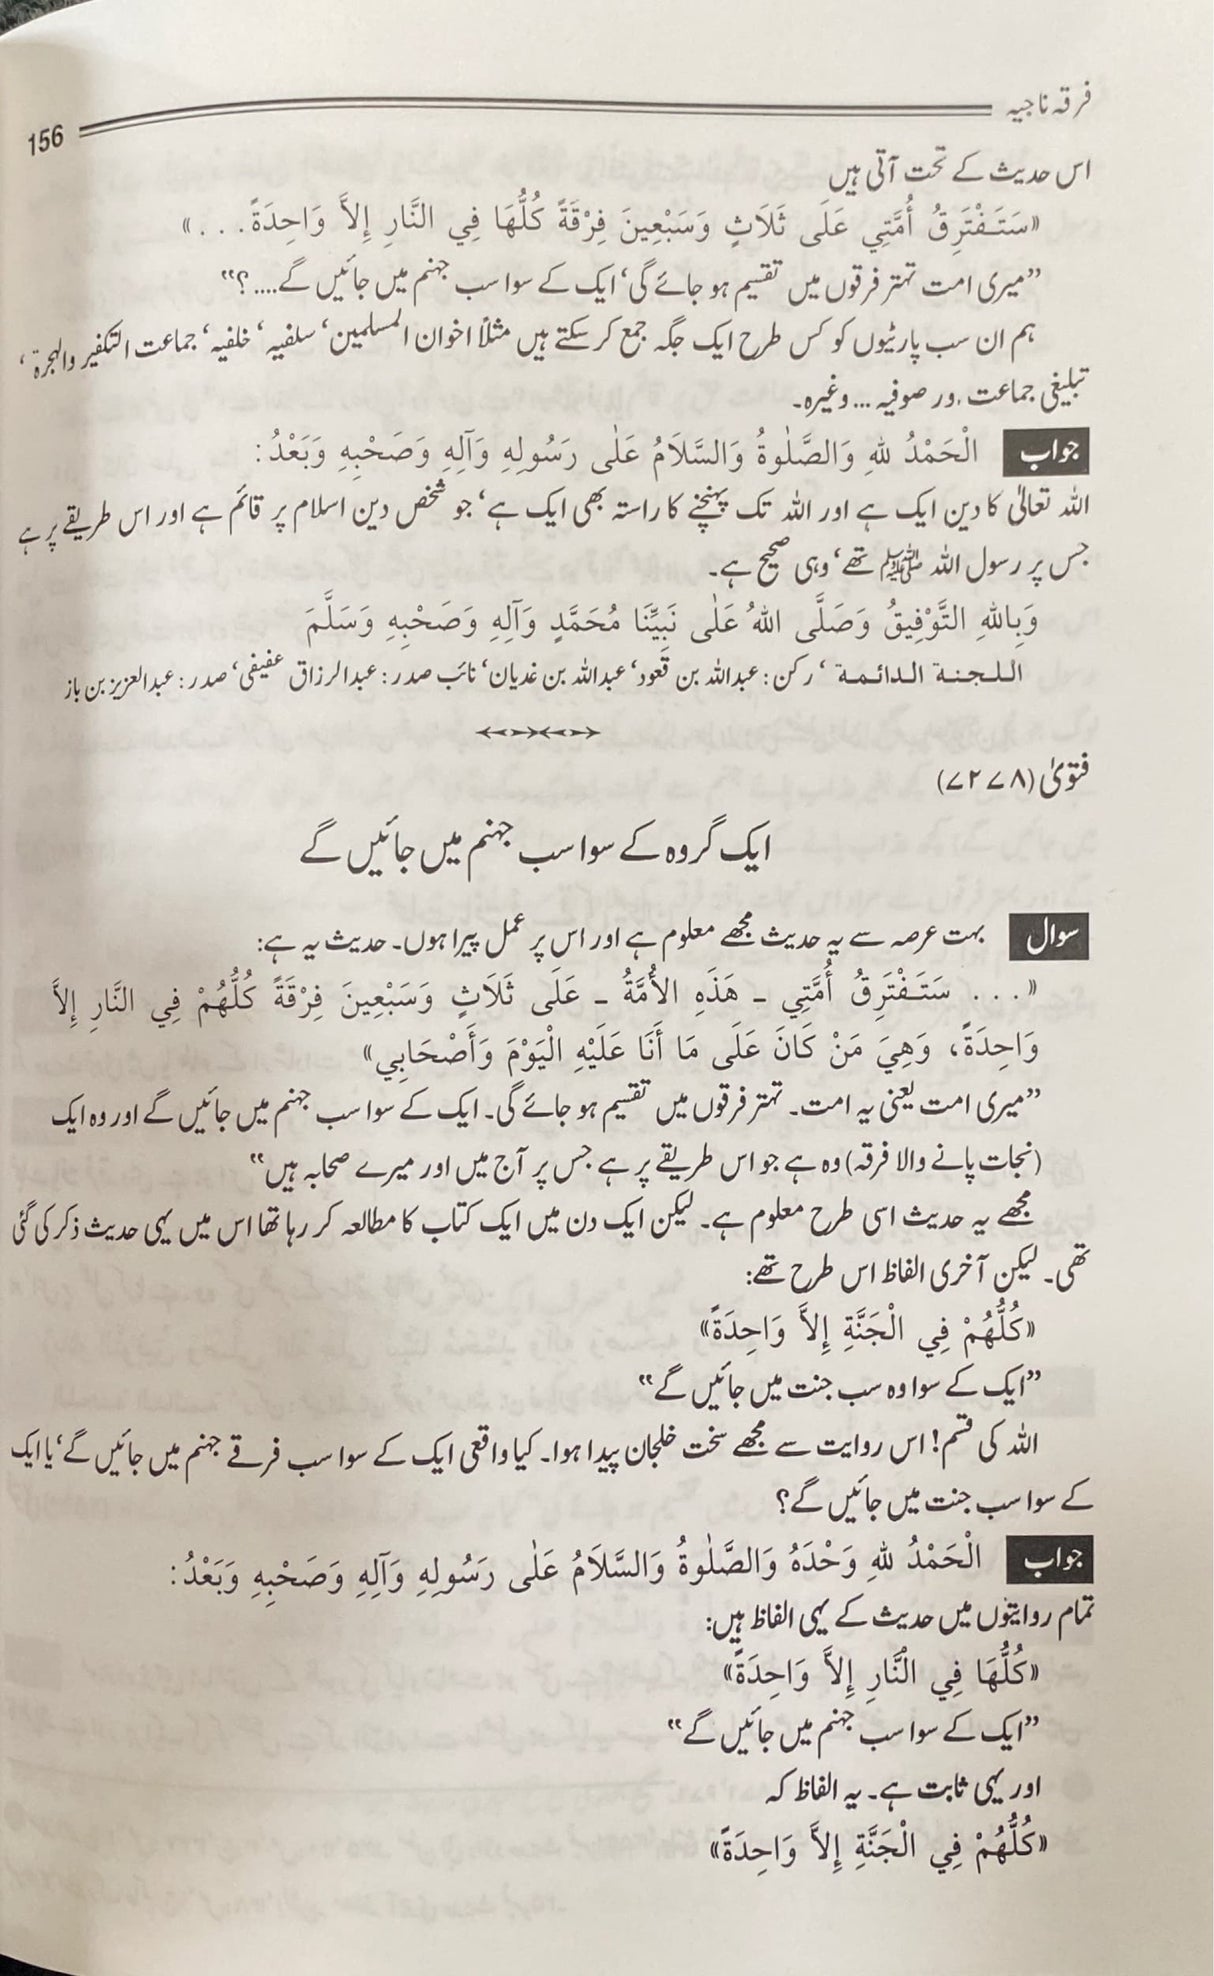 فرقہ ناجیہ
156
اس حدیث کے تحت آتی ہیں
«سَتَفْتَرِقُ أُمَّتِي عَلَى ثَلَاثٍ وَسَبْعِينَ فِرْقَةً كُلُّهَا فِي النَّارِ إِلاَّ وَاحِدَةً. . .»
”میری امت تہتر فرقوں میں تقسیم ہو جائے گی‘ ایک کے سوا سب جہنم میں جائیں گے....؟“
ہم ان سب پارٹیوں کو کس طرح ایک جگہ جمع کر سکتے ہیں مثلاً اخوان المسلمین‘ سلفیہ‘ خلفیہ‘ جماعت التکفیر والہجرۃ‘
تبلیغی جماعت ور صوفیہ... وغیرہ۔
جواب الْحَمْدُ للهِ وَالصَّلٰوةُ وَالسَّلَامُ عَلٰى رَسُولِهِ وَآلِهِ وَصَحْبِهِ وَبَعْدُ:
اللہ تعالیٰ کا دین ایک ہے اور اللہ تک پہنچنے کا راستہ بھی ایک ہے‘ جو شخص دین اسلام پر قائم ہے اور اس طریقے پر ہے
جس پر رسول اللہ ﷺ تھے‘ وہی صحیح ہے۔
وَبِاللهِ التَّوْفِيقُ وَصَلَّى اللهُ عَلٰى نَبِيِّنَا مُحَمَّدٍ وَآلِهِ وَصَحْبِهِ وَسَلَّمَ
اللجنة الدائمة‘ رکن: عبداللہ بن قعود‘ عبداللہ بن غدیان‘ نائب صدر: عبدالرزاق عفیفی‘ صدر: عبدالعزیز بن باز
فتویٰ (۷۲۷۸)
ایک گروہ کے سوا سب جہنم میں جائیں گے
سوال بہت عرصہ سے یہ حدیث مجھے معلوم ہے اور اس پر عمل پیرا ہوں۔ حدیث یہ ہے:
«. . . سَتَفْتَرِقُ أُمَّتِي ـ هَذَهِ الأُمَّةُ ـ عَلَى ثَلَاثٍ وَسَبْعِينَ فِرْقَةً كُلُّهُمْ فِي النَّارِ إِلاَّ
وَاحِدَةً، وَهِيَ مَنْ كَانَ عَلَى مَا أَنَا عَلَيْهِ الْيَوْمَ وَأَصْحَابِي»
”میری امت یعنی یہ امت۔ تہتر فرقوں میں تقسیم ہو جائے گی۔ ایک کے سوا سب جہنم میں جائیں گے اور وہ ایک
(نجات پانے والا فرقہ) وہ ہے جو اس طریقے پر ہے جس پر آج میں اور میرے صحابہ ہیں“
مجھے یہ حدیث اسی طرح معلوم ہے۔ لیکن ایک دن میں ایک کتاب کا مطالعہ کر رہا تھا اس میں یہی حدیث ذکر کی گئی
تھی۔ لیکن آخری الفاظ اس طرح تھے:
«كُلُّهُمْ فِي الْجَنَّةِ إِلاَّ وَاحِدَةً»
”ایک کے سوا وہ سب جنت میں جائیں گے“
اللہ کی قسم! اس روایت سے مجھے سخت خلجان پیدا ہوا۔ کیا واقعی ایک کے سوا سب فرقے جہنم میں جائیں گے‘ یا ایک
کے سوا سب جنت میں جائیں گے؟
جواب الْحَمْدُ للهِ وَحْدَهُ وَالصَّلٰوةُ وَالسَّلَامُ عَلٰى رَسُولِهِ وَآلِهِ وَصَحْبِهِ وَبَعْدُ:
تمام روایتوں میں حدیث کے یہی الفاظ ہیں:
«كُلُّهَا فِي النَّارِ إِلاَّ وَاحِدَةً»
”ایک کے سوا سب جہنم میں جائیں گے“
اور یہی ثابت ہے۔ یہ الفاظ کہ
«كُلُّهُمْ فِي الْجَنَّةِ إِلاَّ وَاحِدَةً»